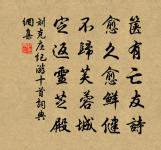 篋有亡友詩
愈久愈鮮健
不歸芙蓉城
定返靈芝殿
刘克庄紀游十首詞典
網集